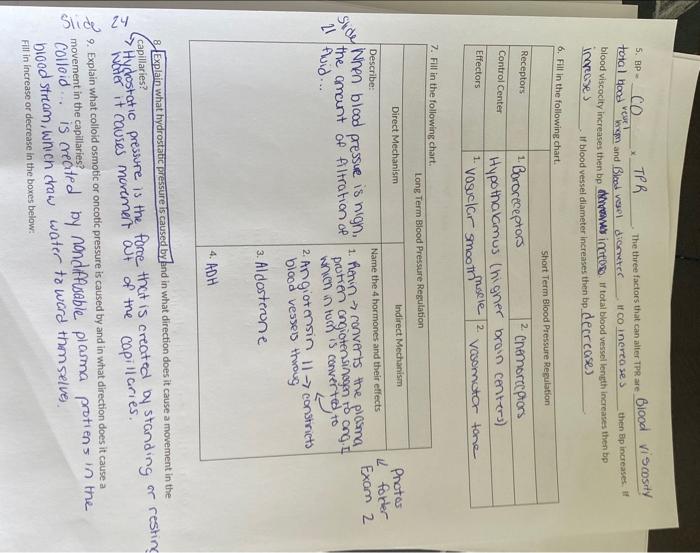 5. BP = CO x TPR. The three factors that can alter TPR are Blood viscosity
total blood vessel length and Blood vessel diameter. If CO increases then Bp increases. If
blood viscocity increases then bp increases. If total blood vessel length increases then bp
increases. If blood vessel diameter increases then bp decreases
6. Fill in the following chart.
Short Term Blood Pressure Regulation
Receptors 1. Baroreceptors 2. Chemoreceptors
Control Center Hypothalamus (higher brain centers)
Effectors 1. vascular smooth muscle 2. vasomotor tone
7. Fill in the following chart.
Long Term Blood Pressure Regulation
Direct Mechanism Indirect Mechanism
Describe: Name the 4 hormones and their effects
Slide 21
When blood pressure is high,
the amount of filtration of
fluid...
1. Renin → converts the plasma
protien angiotensinogen to ang. I
which in turn is converted to
2. Angiotensin II → constricts
blood vessels throug
3. Aldosterone
4. ADH
Photos
for
Exam 2
24
8. Explain what hydrostatic pressure is caused by and in what direction does it cause a movement in the
capillaries?
→ Hydrostatic pressure is the force that is created by standing or resting
water it causes movement out of the capillaries.
Slide 9. Explain what colloid osmotic or oncotic pressure is caused by and in what direction does it cause a
movement in the capillaries?
Colloid... is created by nondiffusable plasma protiens in the
blood stream, which draw water toward themselves.
Fill in increase or decrease in the boxes below: